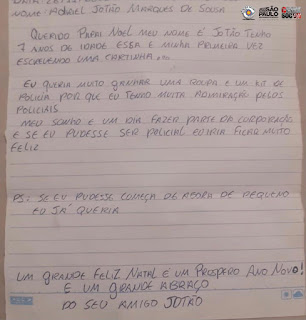 NOME: ADRIEL JOTÃO MARQUES DE SOUSA
QUERIDO PAPAI NOEL MEU NOME É JOTÃO TENHO
7 ANOS DE IDADE ESSA É MINHA PRIMEIRA VEZ
ESCREVENDO UMA CARTINHA...
EU QUERIA MUITO GANHAR UMA ROUPA E UM KIT DE
POLICIA POR QUE EU TENHO MUITA ADMIRAÇÃO PELOS
POLICIAIS
MEU SONHO E UM DIA FAZER PARTE DA CORPORAÇÃO
E SE EU PUDESSE SER POLICIAL EU IRIA FICAR MUITO
FELIZ
PS: SE EU PUDESSE COMEÇA DE AGORA DE PEQUENO
EU JÁ QUERIA
UM GRANDE FELIZ NATAL E UM PROSPERO ANO NOVO!
E UM GRANDE ABRAÇO
DO SEU AMIGO JOTÃO
SÃO PAULO